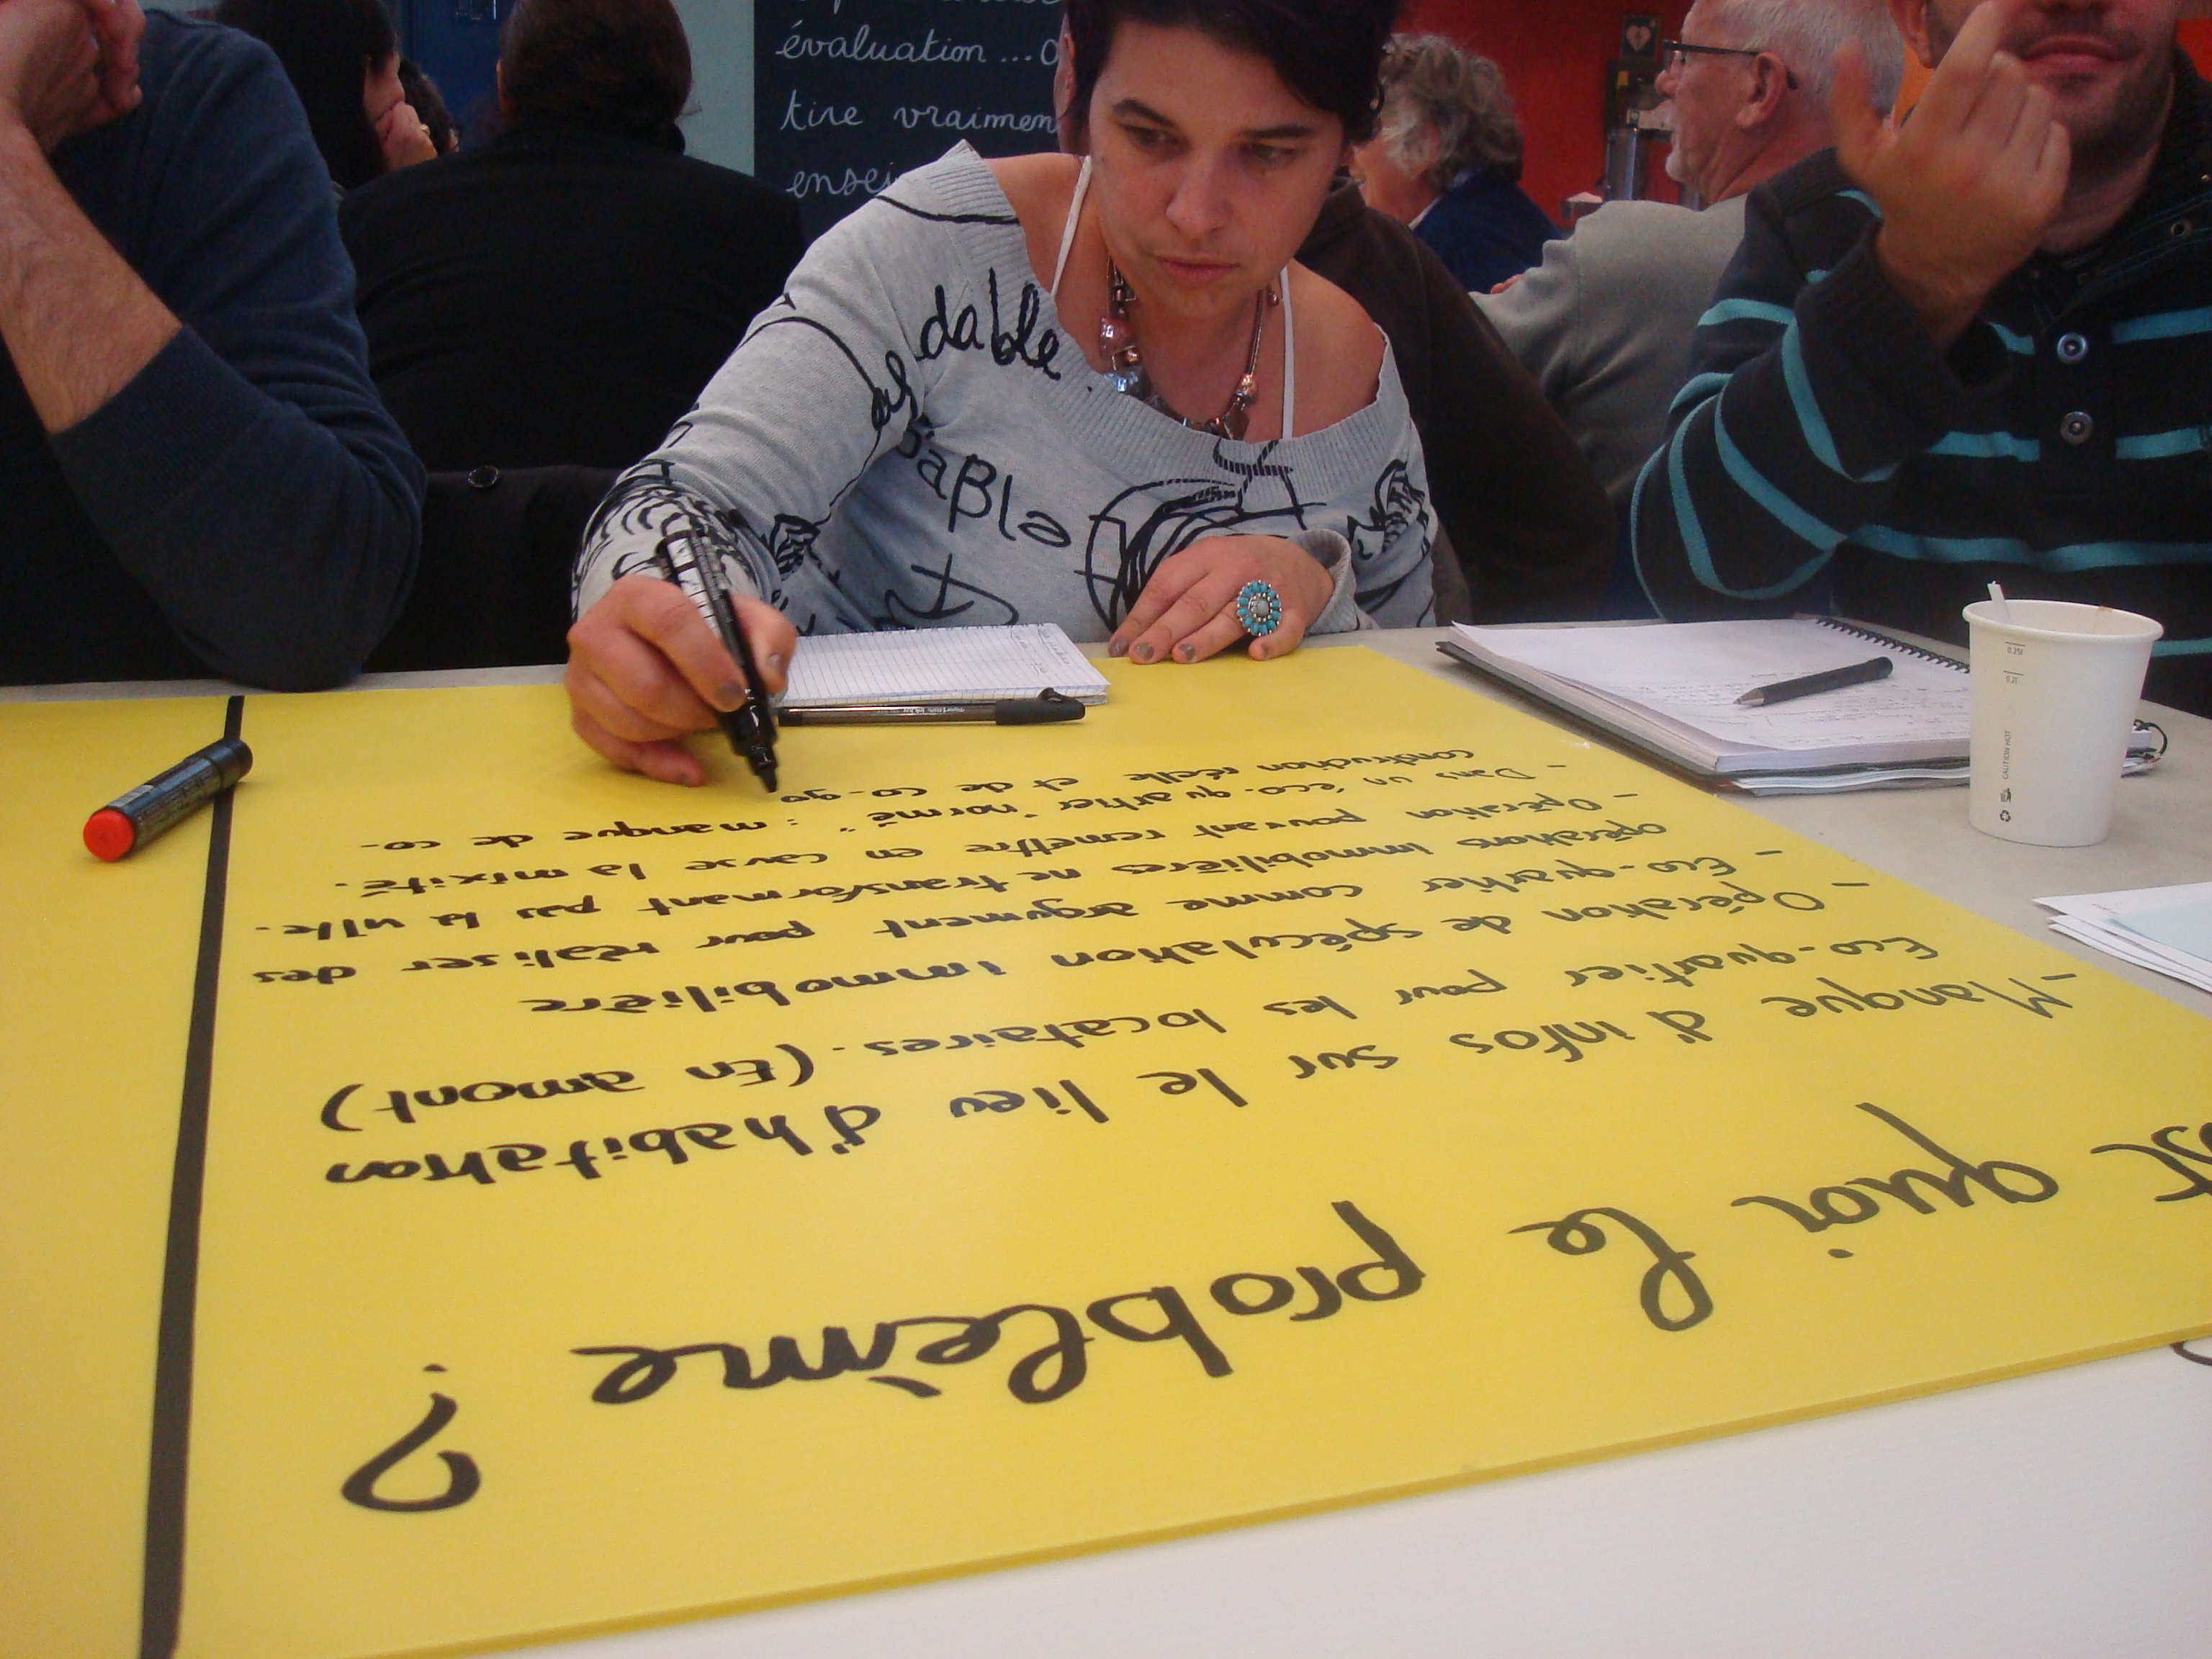 évaluation ...
tire vraimen
ensei
dable
BaBla
est quoi le problème ?
- Manque d'infos sur le lieu d'habitation
Eco-quartier pour les locataires. (En amont)
- Opération de spéculation immobilière
- Eco-quartier comme argument pour réaliser des
opérations immobilières ne transformant pas la ville.
- Opération pouvant remettre en cause la mixité.
- Dans un "éco-quartier "normé" : manque de co-
construction réelle et de co-go
0.25l
0.2l
CAUTION HOT